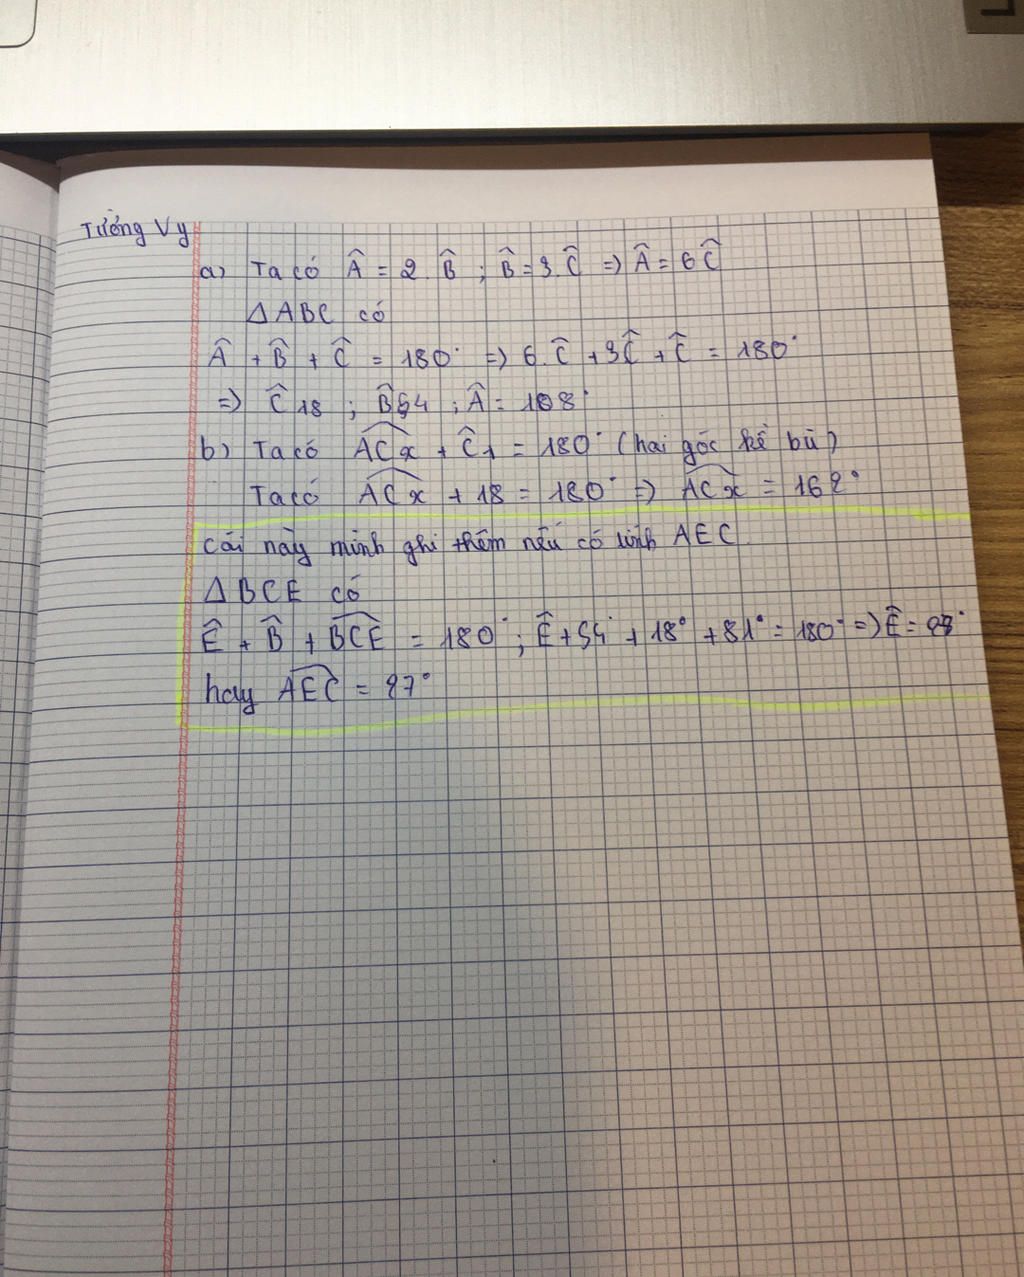 Tường Vy
a) Ta có Â = 2. B̂ ; B̂ = 3. Ĉ => Â = 6Ĉ
ΔABC có
Â + B̂ + Ĉ = 180° => 6.Ĉ + 3Ĉ + Ĉ = 180°
=> Ĉ 18 ; B̂ 54 ; Â = 108°
b) Ta có ACx + Ĉ1 = 180° (hai góc kề bù)
Ta có ACx + 18 = 180° => ACx = 162°
Cái này mình ghi thêm nếu có tính AEC
ΔBCE có
Ê + B̂ + BCE = 180° ; Ê + 54° + 18° + 81° = 180° => Ê =
hay AEC = 27°